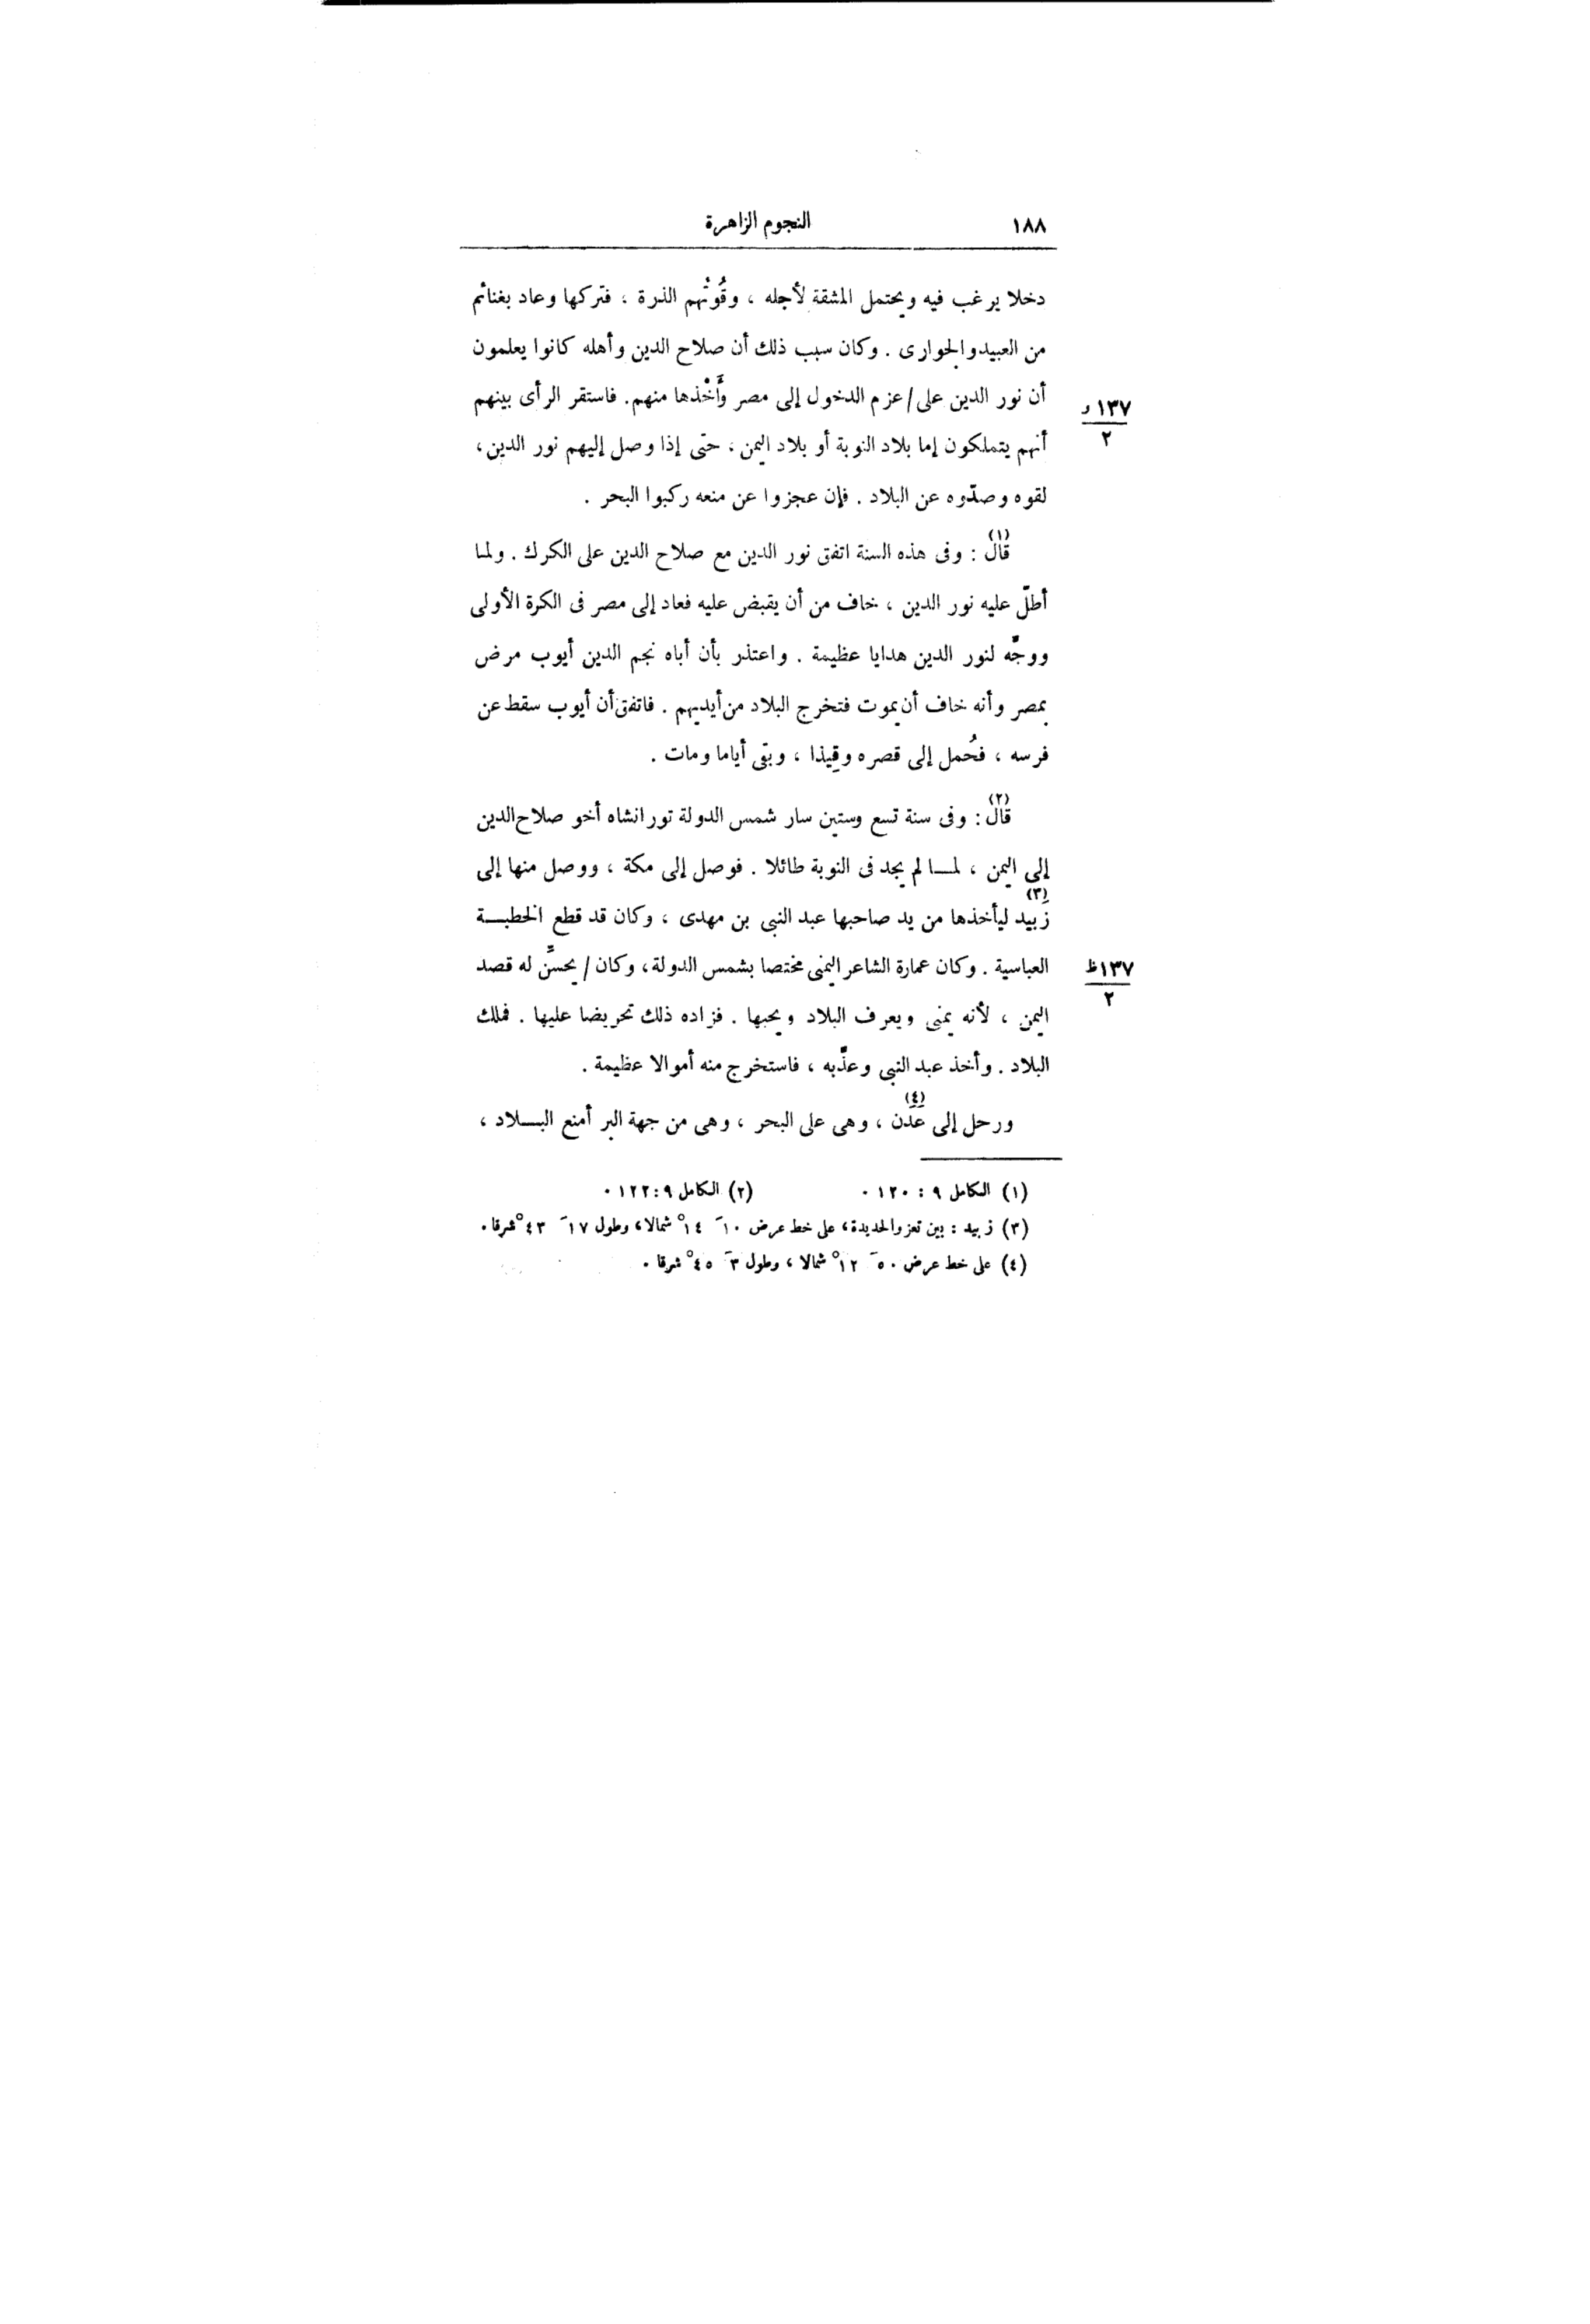 ١٨٨ النجوم الزاهرة
دخلا يرغب فيه ويحتمل المشقة لأجله ، وقُوتُهم الذرة ، فتركها وعاد بغنائم
من العبيد والجوارى . وكان سبب ذلك أن صلاح الدين وأهله كانوا يعلمون
أن نور الدين على / عزم الدخول إلى مصر وأَخْذها منهم. فاستقر الرأى بينهم
١٣٧ و
٢
أنهم يتملكون إما بلاد النوبة أو بلاد اليمن ، حتى إذا وصل إليهم نور الدين ،
لقوه وصدّوه عن البلاد . فإن عجزوا عن منعه ركبوا البحر .
قال(١) : وفى هذه السنة اتفق نور الدين مع صلاح الدين على الكرك . ولمـا
أطلّ عليه نور الدين ، خاف من أن يقبض عليه فعاد إلى مصر فى الكرة الأولى
ووجَّه لنور الدين هدايا عظيمة . واعتذر بأن أباه نجم الدين أيوب مرض
بمصر وأنه خاف أن يموت فتخرج البلاد من أيديهم . فاتفق أن أيوب سقط عن
فرسه ، فحُمل إلى قصره وقِيذا ، وبقى أياما ومات .
قال(٢) : وفى سنة تسع وستين سار شمس الدولة تورانشاه أخو صلاح الدين
إلى اليمن ، لمــا لم يجد فى النوبة طائلا . فوصل إلى مكة ، ووصل منها إلى
زَبيد(٣) ليأخذها من يد صاحبها عبد النبى بن مهدى ، وكان قد قطع الخطبــة
العباسية . وكان عمارة الشاعر اليمنى مختصا بشمس الدولة ، وكان / يحسِّن له قصد
١٣٧ ظ
٢
اليمن ، لأنه يمنى ويعرف البلاد ويحبها . فزاده ذلك تحريضا عليها . فملك
البلاد . وأخذ عبد النبى وعذّبه ، فاستخرج منه أموالا عظيمة .
ورحل إلى عَدَن(٤) ، وهى على البحر ، وهى من جهة البر أمنع البــلاد ،
(١) الكامل ٩ : ١٢٠ . (٢) الكامل ٩ : ١٢٢ .
(٣) زبيد : بين تعز والحديدة، على خط عرض ١٠َ ١٤ْ شمالا، وطول ١٧َ ٤٣ْ شرقا .
(٤) على خط عرض ٥٠َ ١٢ْ شمالا ، وطول ٣َ ٤٥ْ شرقا .